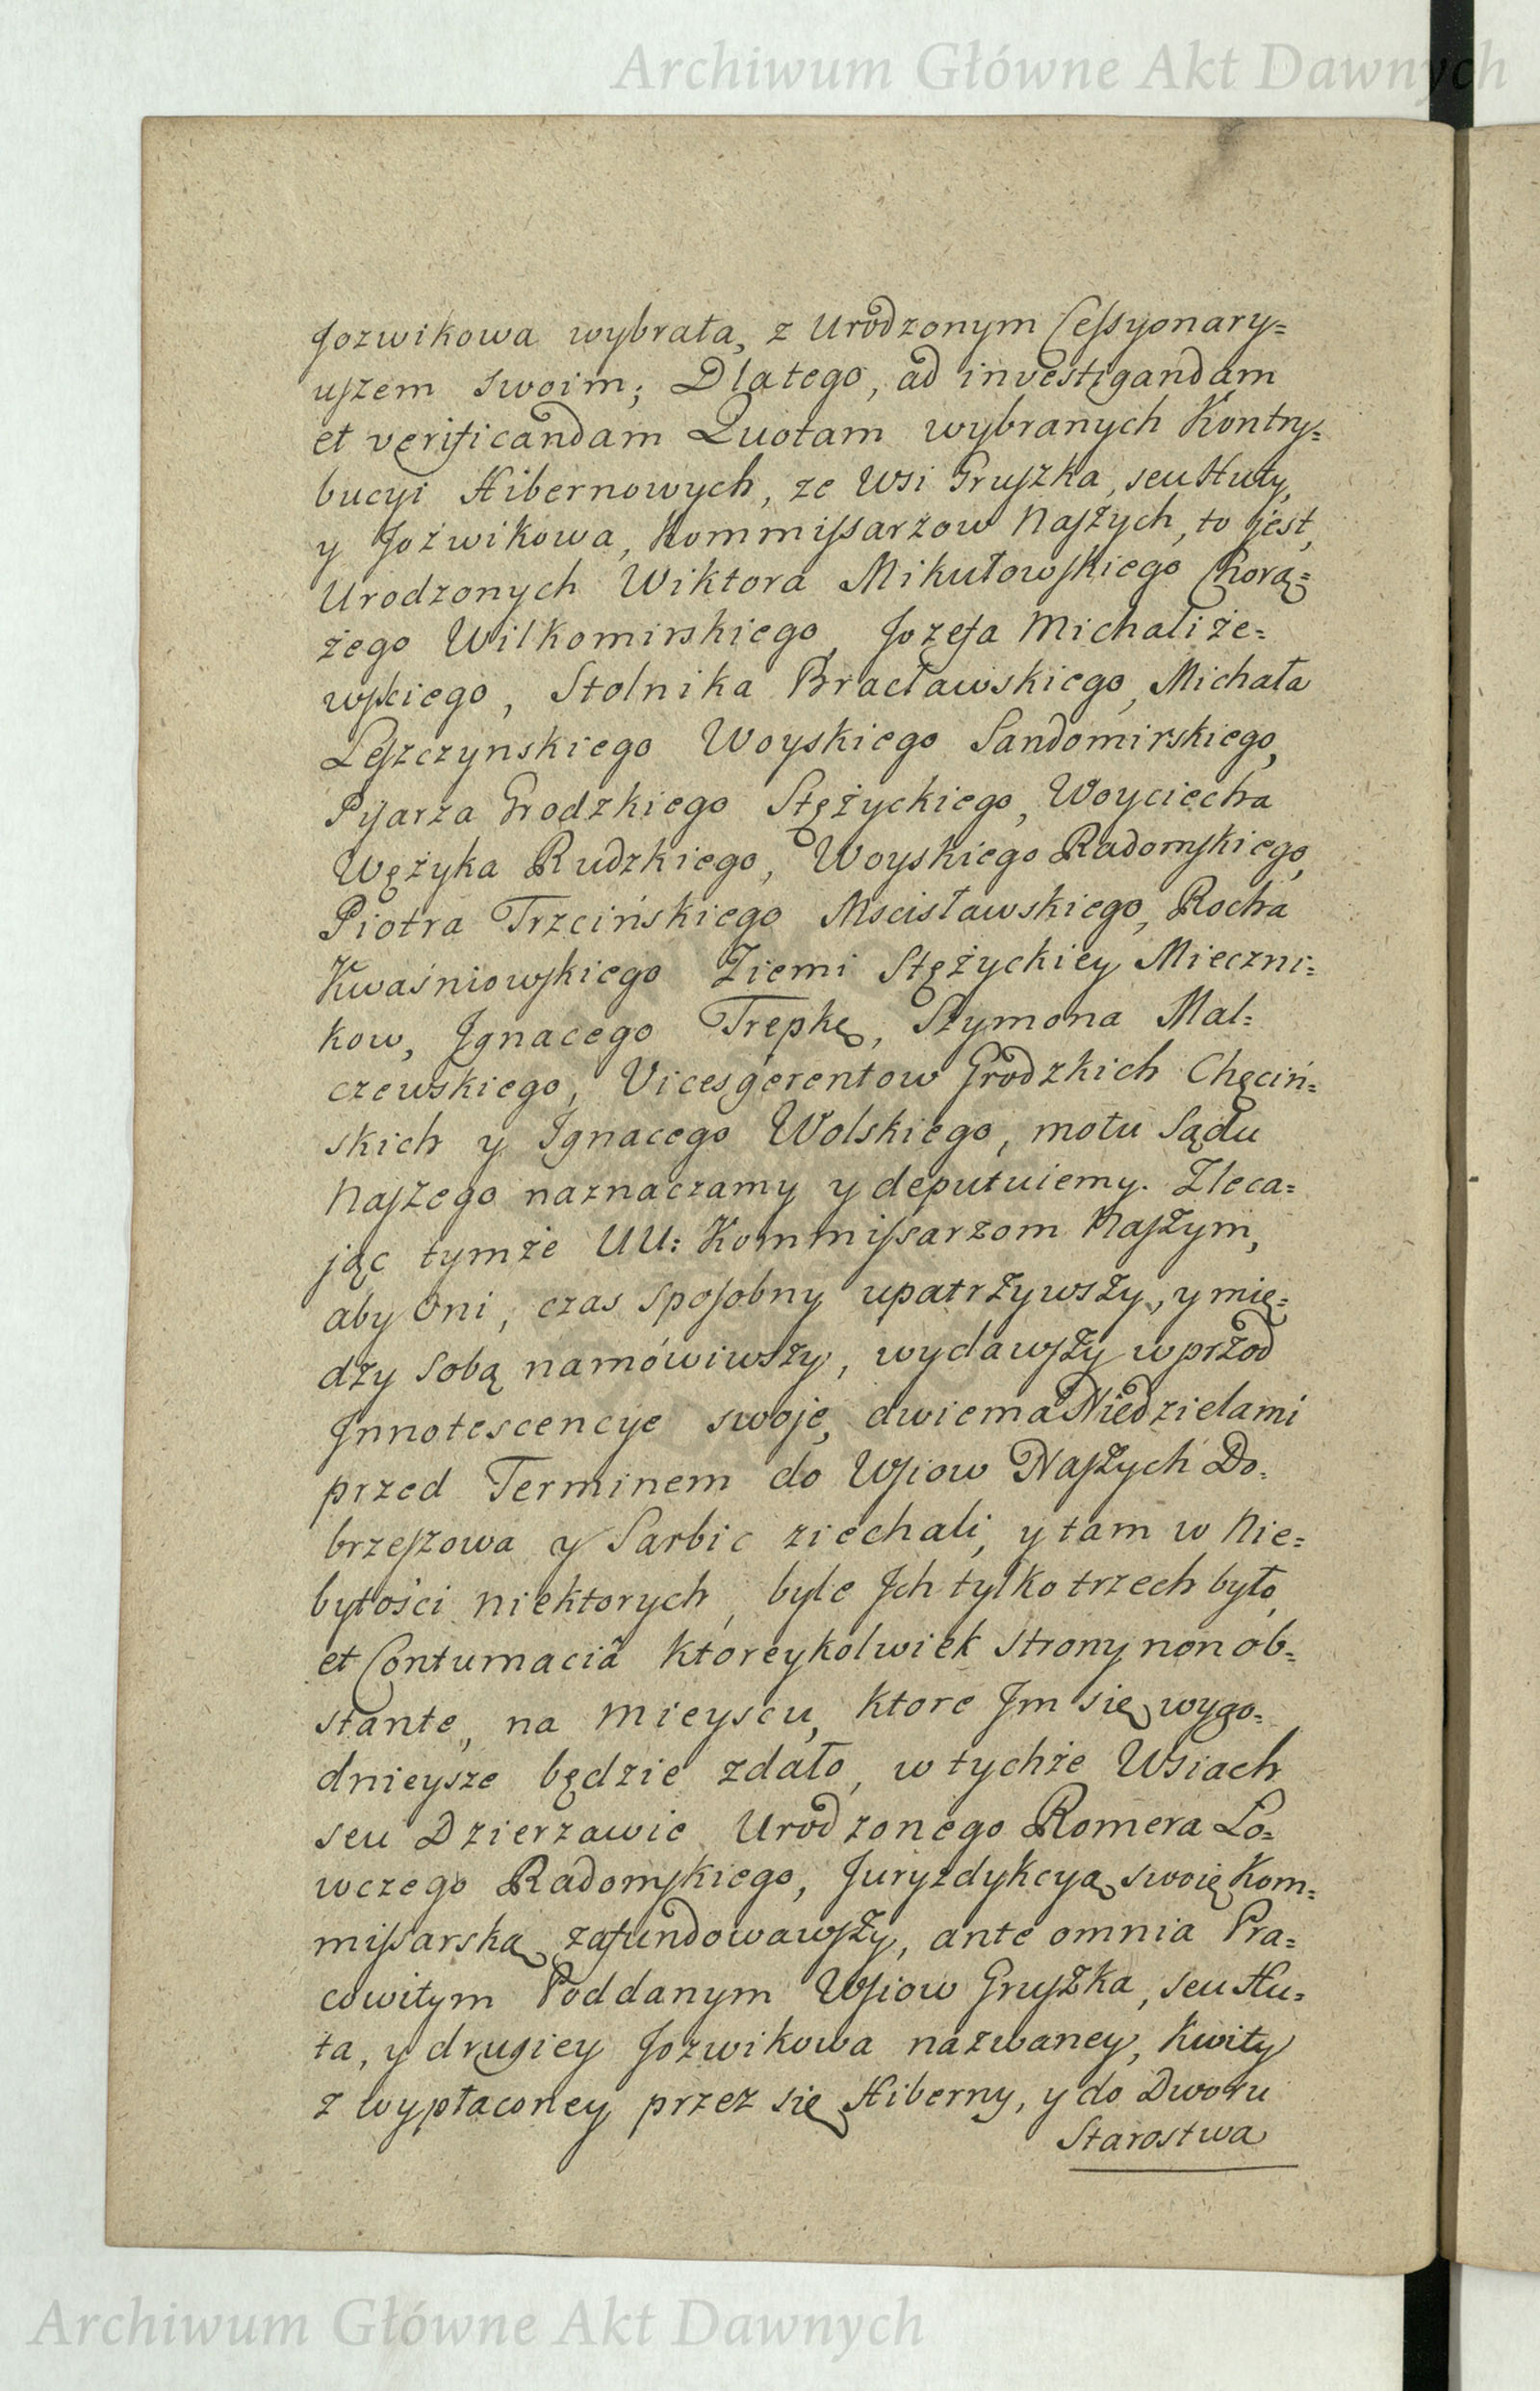 Archiwum Główne Akt Dawnych
Jozwikowa wybrała, z Urodzonym Cessyonary=
uszem swoim; Dlatego, ad investigandam
et verificandam Quotam wybranych Kontry=
bucyi Hibernowych, ze Wsi Gruszka, seu Huty,
y Jożwikowa, Kommissarzow Naszych, to jest,
Urodzonych Wiktora Mikułowskiego Chorą=
żego Wilkomirskiego, Jozefa Michaliże=
wskiego, Stolnika Bracławskiego, Michała
Leszczynskiego Woyskiego Sandomirskiego,
Pisarza Grodzkiego Stężyckiego, Woyciecha
Wężyka Rudzkiego, Woyskiego Radomskiego,
Piotra Trzcińskiego Mscisławskiego, Rocha
Kwaśniowskiego Ziemi Stężyckiey Mieczni=
kow, Jgnacego Trepkę, Szymona Mal=
czewskiego, Vicesgerentow Grodzkich Chęciń=
skich y Jgnacego Wolskiego, motu Sądu
Naszego naznaczamy y deputuiemy. Zleca=
jąc tymże UU: Kommissarzom Naszym,
aby Oni, czas sposobny upatrzywszy, y mię=
dzy sobą namówiwszy, wydawszy wprzod
Jnnotescencye swoje, dwiema Niedzielami
przed Terminem do Wsiow Naszych Do=
brzeszowa y Sarbic ziechali, y tam w Nie=
bytości niektorych, byle Jch tylko trzech było,
et Contumaciâ ktoreykolwiek strony non ob=
stante, na Mieyscu, ktore Jm się wygo=
dnieysze będzie zdało, w tychże Wsiach
seu Dzierzawie Urodzonego Romera Ło=
wczego Radomskiego, Juryzdykcyą swoię Kom=
missarską zafundowawszy, ante omnia Pra=
cowitym Poddanym Wsiow Gruszka, seu Hu=
ta, y drugiey Jozwikowa nazwaney, Kwity
z wypłaconey przez się Hiberny, y do Dworu
Starostwa
Archiwum Główne Akt Dawnych